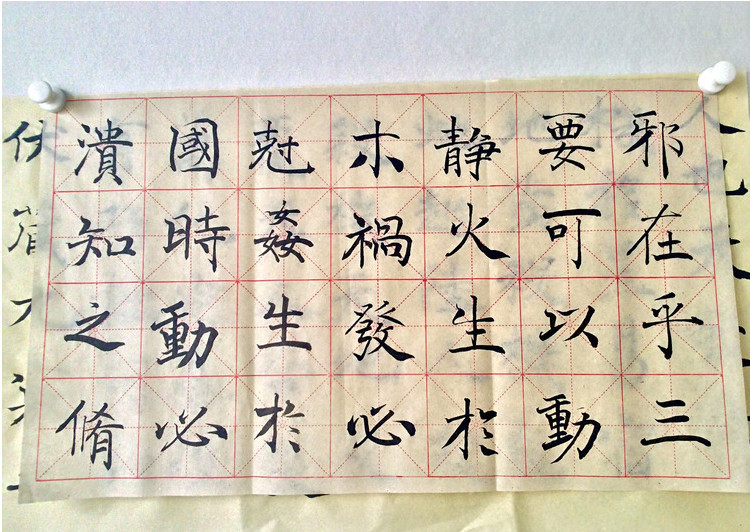 邪在乎三
要可以動
静火生於
木禍發必
尅姦生於
國時動必
潰知之脩